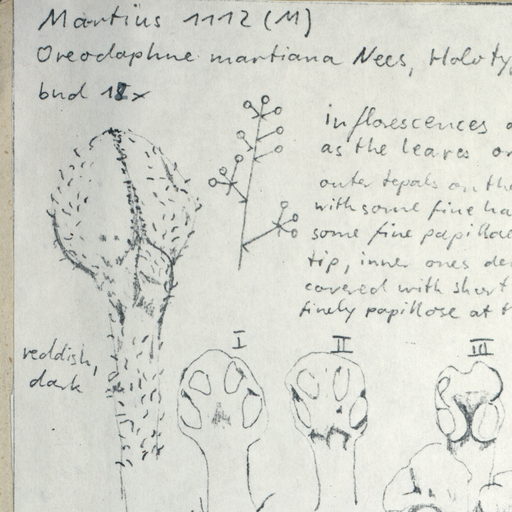 Martius 1112 (M)
Oreodaphne martiana Nees, Holoty
bud 18x
inflorescences
as the leaves or
outer tepals on the
with some fine ha
some fine papillae
tip, inner ones de
covered with short
finely papillose at t
reddish,
dark
I
II
III